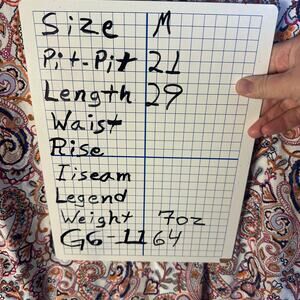 Size M
Pit-Pit 21
Length 29
Waist
Rise
Iiseam
Legend
Weight 7oz
G6-1164